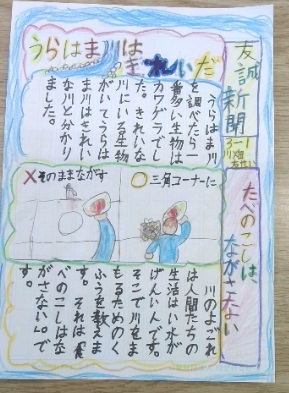 友誠新聞
3-1
うらはま川は
きれいだ
うらはま川
を調べたら一
番多い生物は
カワゲラでし
た。きれいな
川にいる生物
がいてうらは
ま川はきれい
な川と分かり
ました。
たべのこしは、
ながさない
×そのままながす
○三角コーナーに
川のよごれ
は人間たちの
生活はい水が
げんいんです。
そこで川をま
もるためのく
ふうを教えま
す。それは「た
べのこしはな
がさない」。で
す。